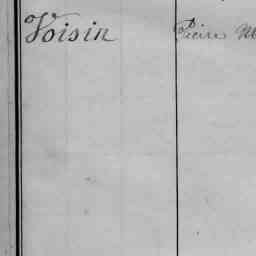 Voisin Pierre M